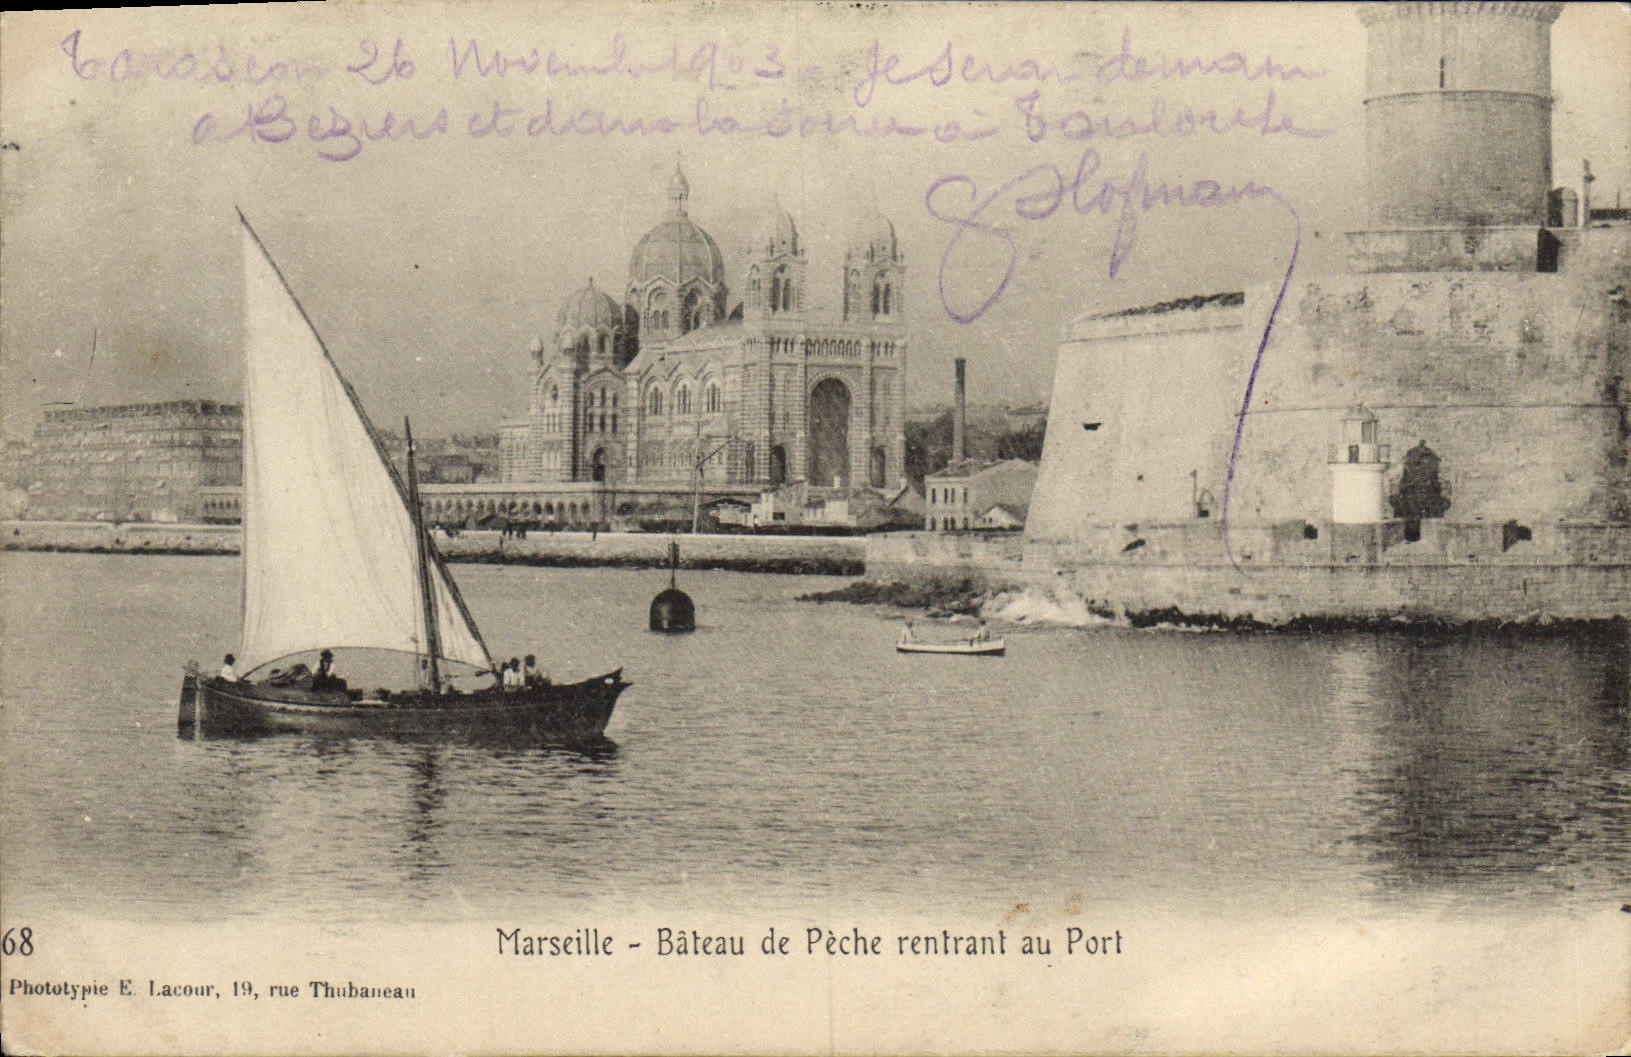 Tarascon 26 Novembre 1903 - Je serai demain
a Beziers et dans la soirée à Toulouse
Hofman
68
Marseille - Bâteau de Pèche rentrant au Port
Phototypie E. Lacour, 19, rue Thubaneau